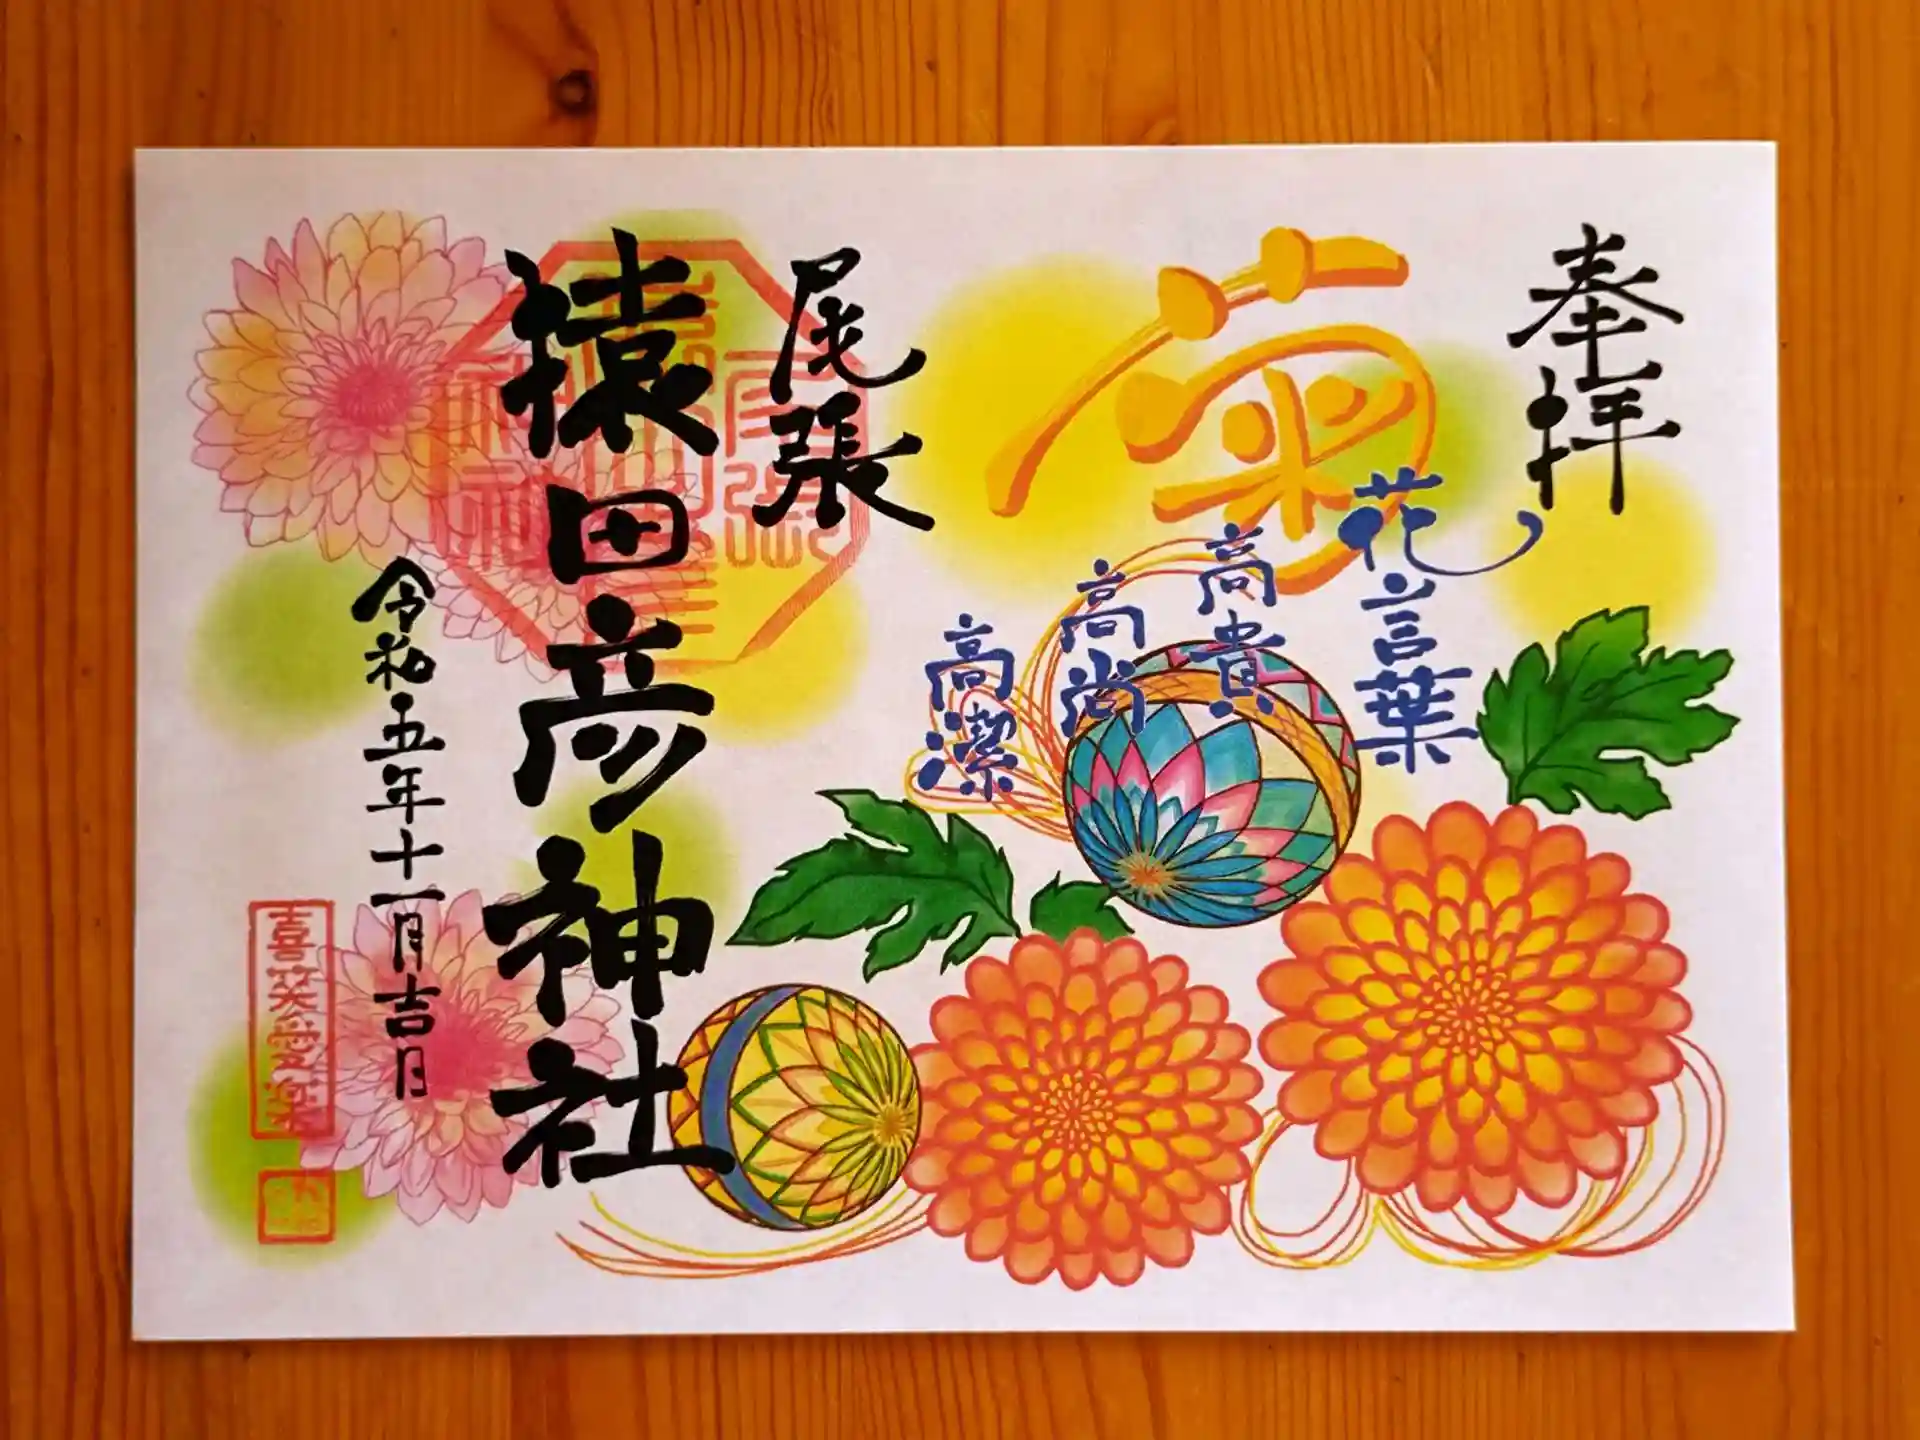 奉拝
菊
花言葉
高貴
高尚
高潔
尾張
猿田彦神社
令和五年十一月吉日
喜笑愛楽